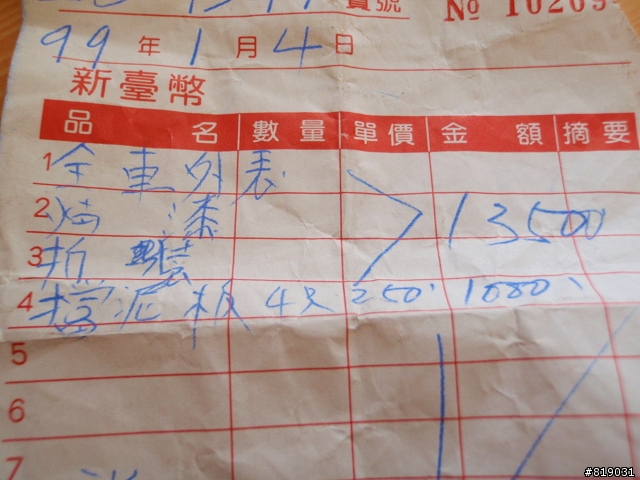 號 № 10269
99 年 1 月 4 日
新臺幣
品 名 數 量 單價 金 額 摘要
1 全車外表
2 烤漆 13500
3 拆裝
4 擋泥板 4只 250
5
6
7
#819031